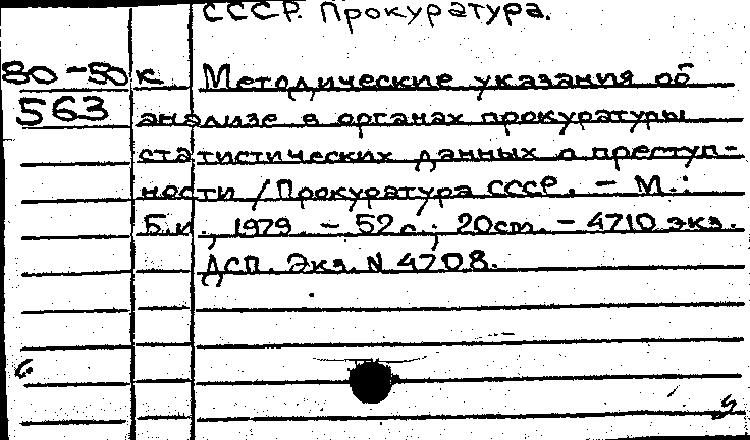 СССР. Прокуратура.
80-50 к Методические указания об
563 анализе в органах прокуратуры
статистических данных о преступ-
ности / Прокуратура СССР. - М.:
Б.и., 1979. - 52 с.; 20 см. - 4710 экз.
ДСП. Экз. N 4708.